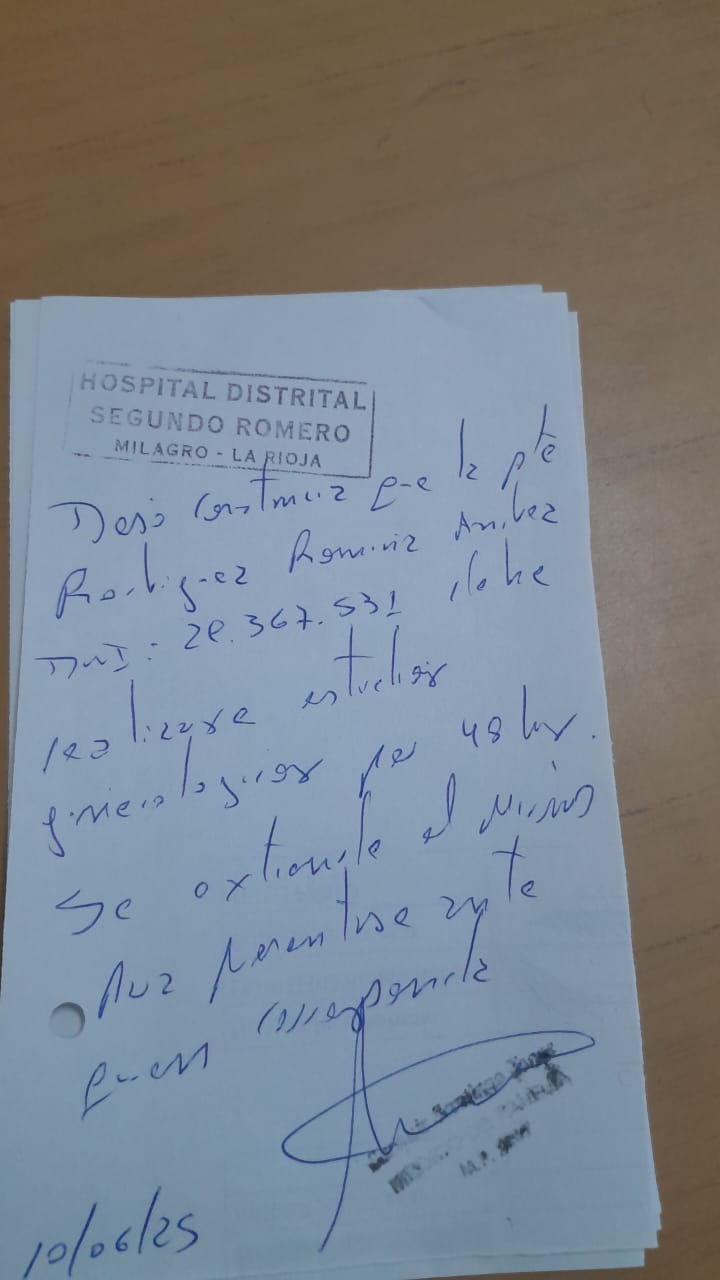 HOSPITAL DISTRITAL
SEGUNDO ROMERO
MILAGRO - LA RIOJA
Dejo constancia que la pte
Rodriguez Romina
DNI: 28.367.531 debe
realizarse estudios
ginecologicos por 48 hs.
Se extiende el mismo
para presentarse ante
quien corresponda
10/06/25